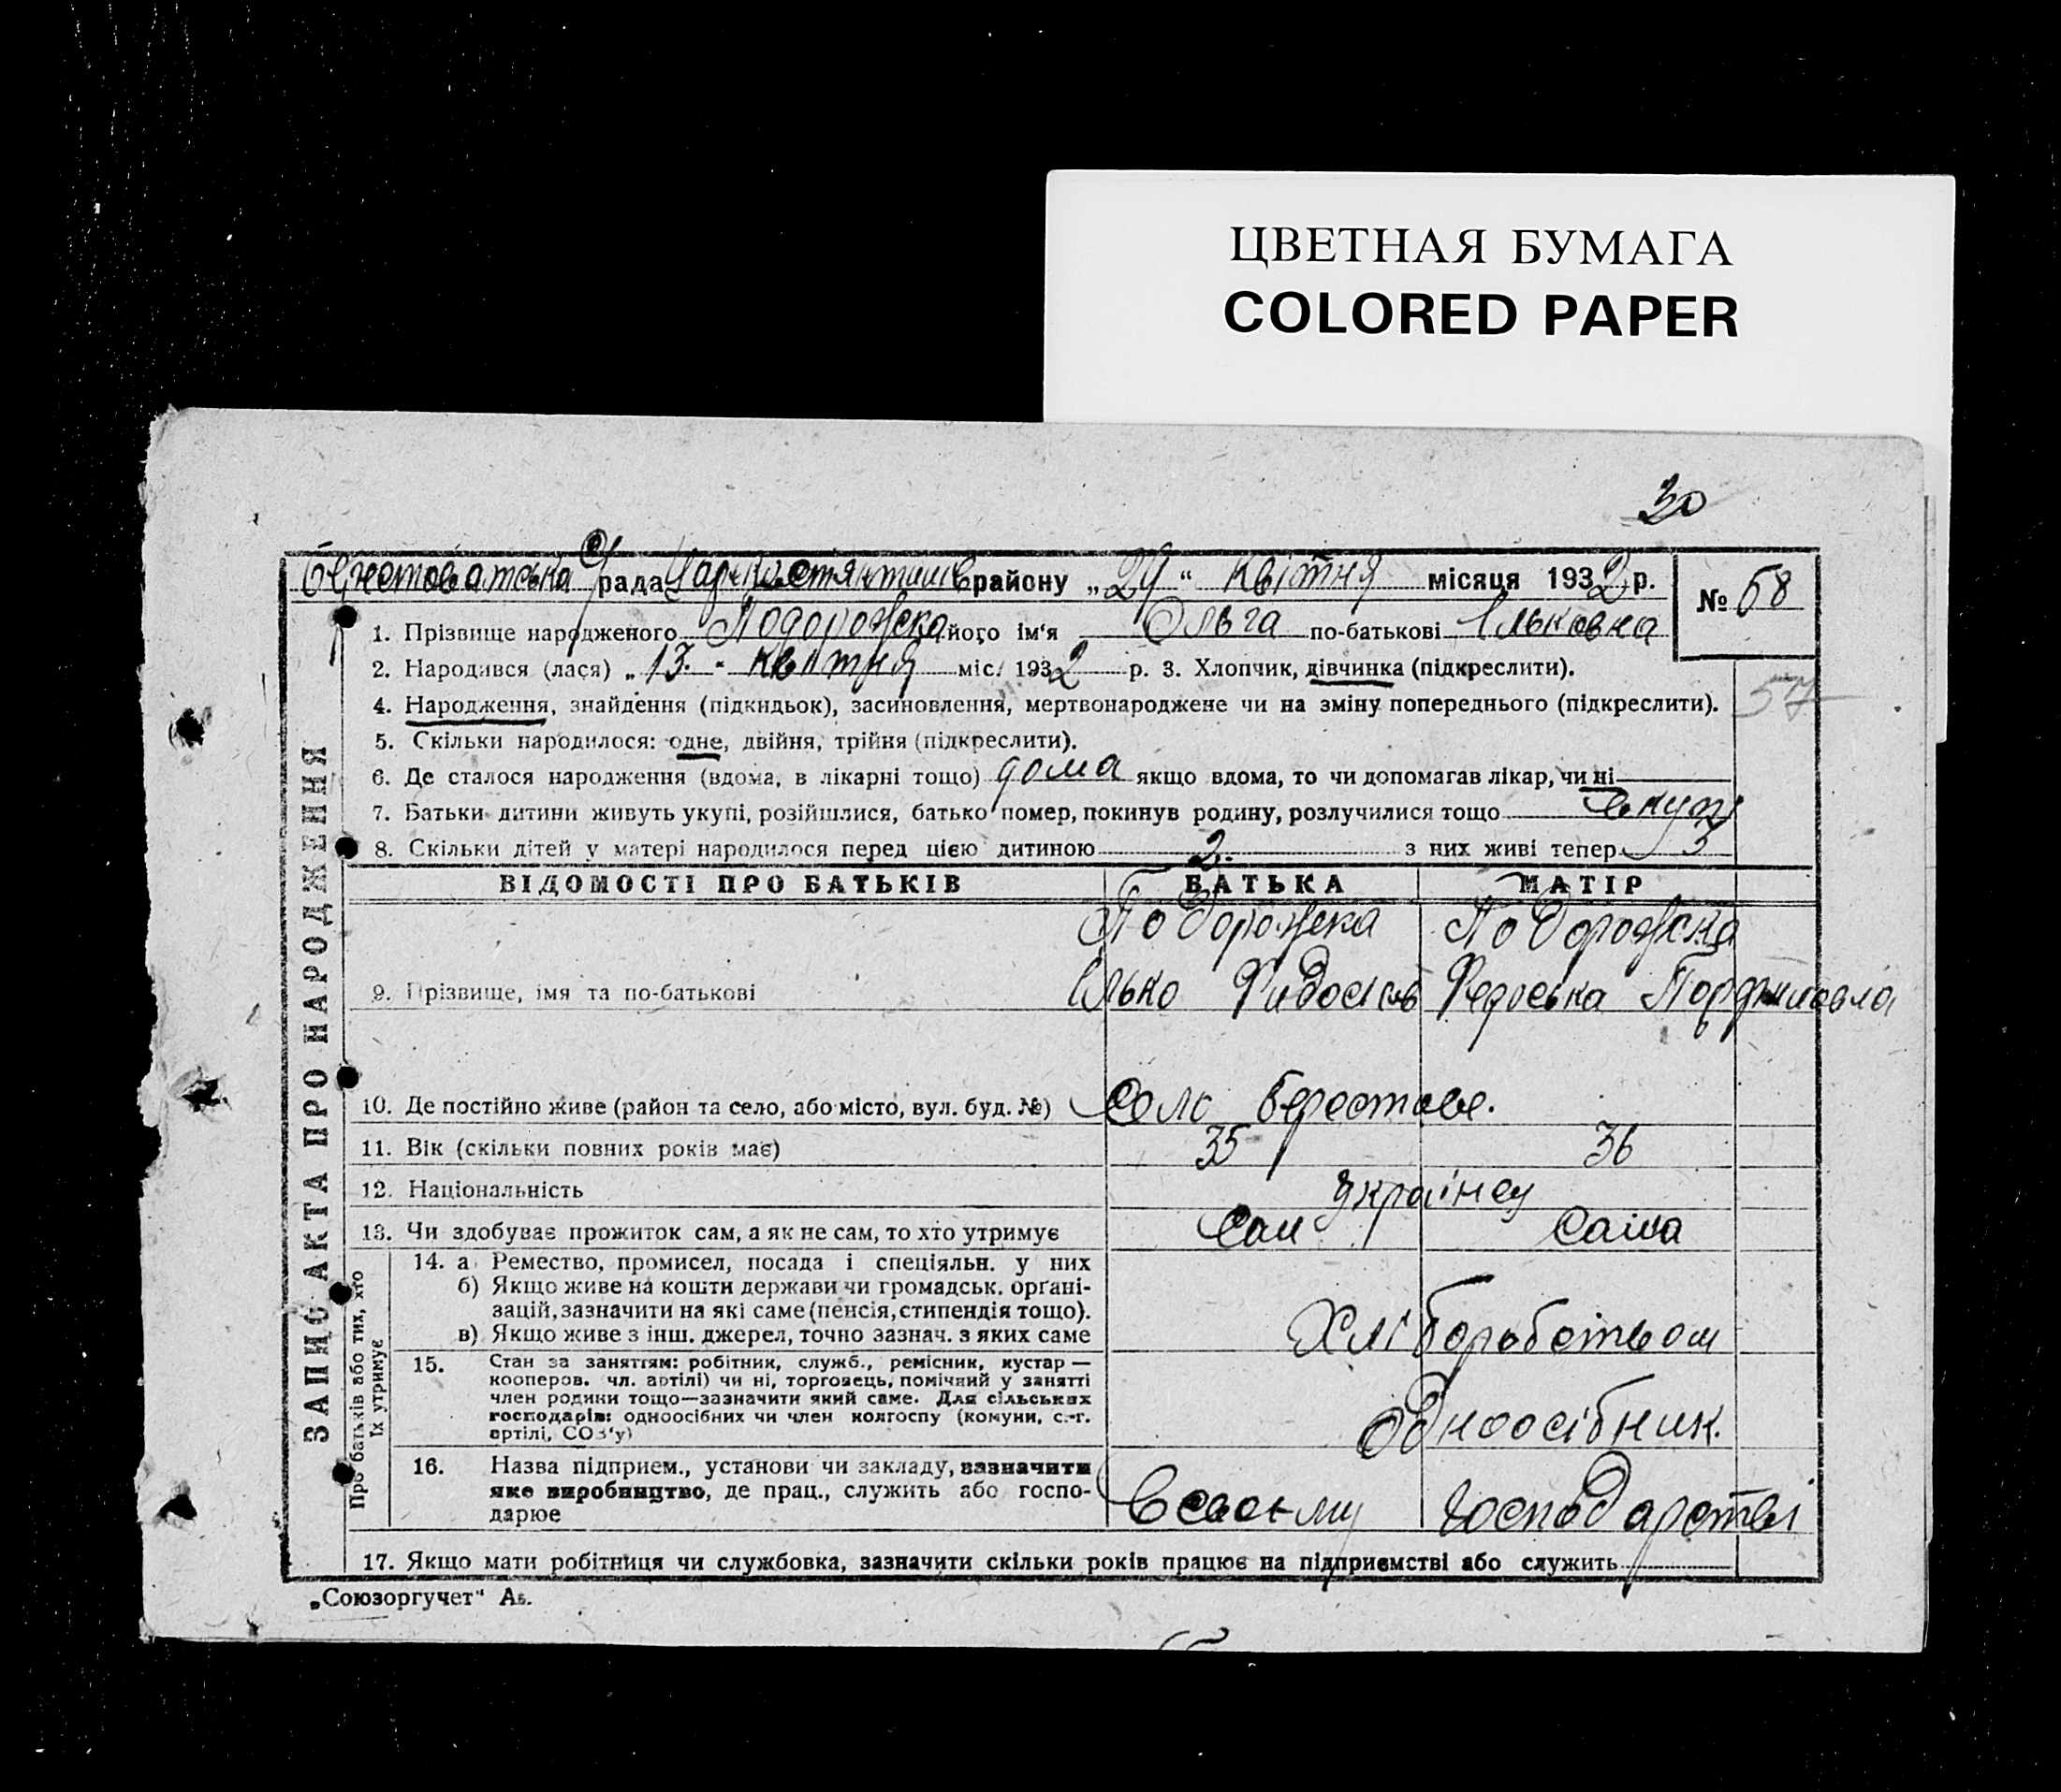 ЦВЕТНАЯ БУМАГА
COLORED PAPER
30
Берестоватська с/рада району „29“ квітня місяця 1932 р.
№ 68
1. Прізвище народженого Подорожека його ім'я Ольга по-батькові Ільковна
2. Народився (лася) „13" квітня міс. 1932 р. 3. Хлопчик, дівчинка (підкреслити).
57
4. Народження, знайдення (підкидьок), засиновлення, мертвонароджене чи на зміну попереднього (підкреслити).
5. Скільки народилося: одне, двійня, трійня (підкреслити).
6. Де сталося народження (вдома, в лікарні тощо) дома якщо вдома, то чи допомагав лікар, чи ні
7. Батьки дитини живуть укупі, розійшлися, батько помер, покинув родину, розлучилися тощо вкупі
8. Скільки дітей у матері народилося перед цією дитиною 2. з них живі тепер 3
ЗАПИС АКТА ПРО НАРОДЖЕННЯ
ВІДОМОСТІ ПРО БАТЬКІВ БАТЬКА МАТІР
Подорожека Подорожека
9. Прізвище, імя та по-батькові Ілько Федоська
10. Де постійно живе (район та село, або місто, вул. буд. №) Село Берестове.
11. Вік (скільки повних років має) 35 36
12. Національність українец
13. Чи здобуває прожиток сам, а як не сам, то хто утримує Сам Сама
Про батьків або тих, хто
їх утримує
14. а Ремество, промисел, посада і спеціяльн. у них
б) Якщо живе на кошти держави чи громадськ. орґані-
зацій, зазначити на які саме (пенсія, стипендія тощо).
в) Якщо живе з інш. джерел, точно зазнач. з яких саме Хліборобством
15. Стан за заняттям: робітник, служб., ремісник, кустар —
кооперов. чл. артілі) чи ні, торговець, помічний у занятті
член родини тощо—зазначити який саме. Для сільських
господарів: одноосібних чи член колгоспу (комуни, с.-г.
артілі, СОЗ'у) Одноосібник.
16. Назва підприєм., установи чи закладу, зазначити
яке виробництво, де прац., служить або госпо-
дарює В своєму господарстві
17. Якщо мати робітниця чи службовка, зазначити скільки років працює на підприємстві або служить
„Союзоргучет"